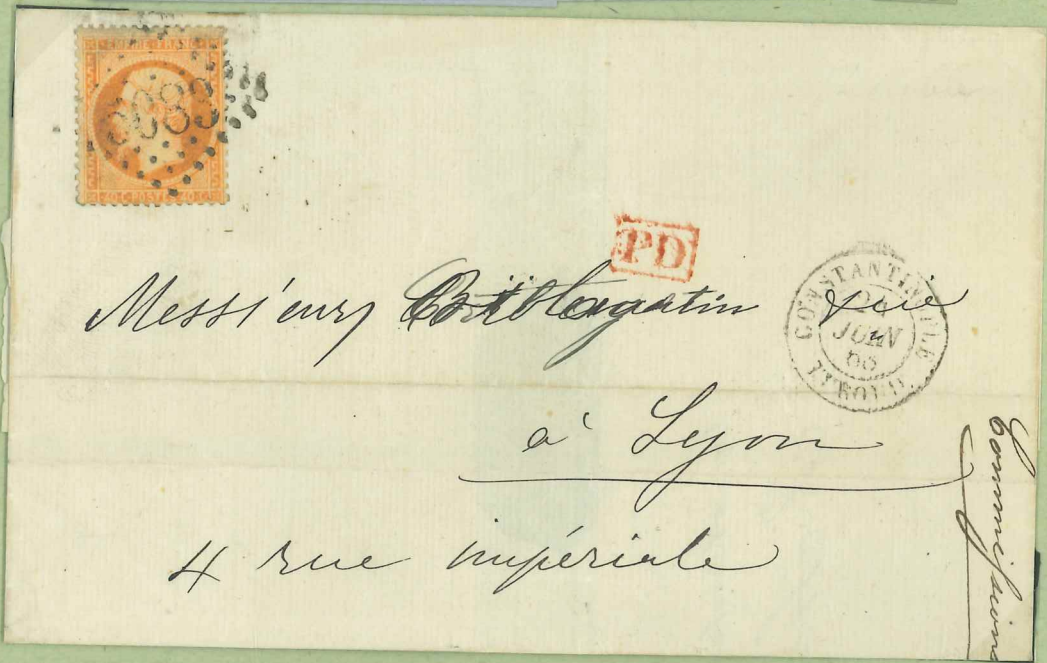 EMPIRE FRANC
5083
40 C POSTES 40 C
PD
CONSTANTINOPLE
JUIN
TURQUIE
Messieurs
à Lyon
4 rue impériale
Commission